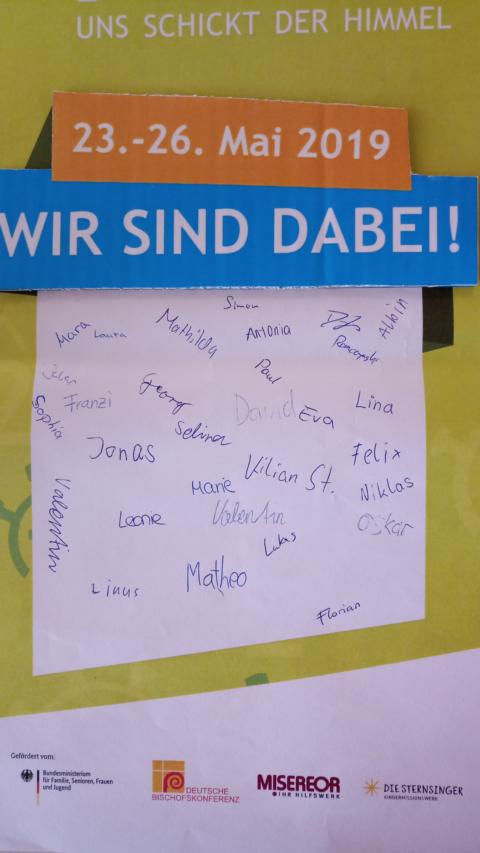 UNS SCHICKT DER HIMMEL
23.-26. Mai 2019
WIR SIND DABEI!
Simon
Mara
Laura
Mathilda
Antonia
Albin
Paul
Franzi
Georg
David
Eva
Lina
Sophia
Selina
Jonas
Felix
Kilian St.
Marie
Niklas
Valentin
Leonie
Valentin
Oskar
Lukas
Matheo
Linus
Florian
Gefördert vom:
Bundesministerium
für Familie, Senioren, Frauen
und Jugend
DEUTSCHE
BISCHOFSKONFERENZ
MISEREOR
IHR HILFSWERK
DIE STERNSINGER
KINDERMISSIONSWERK